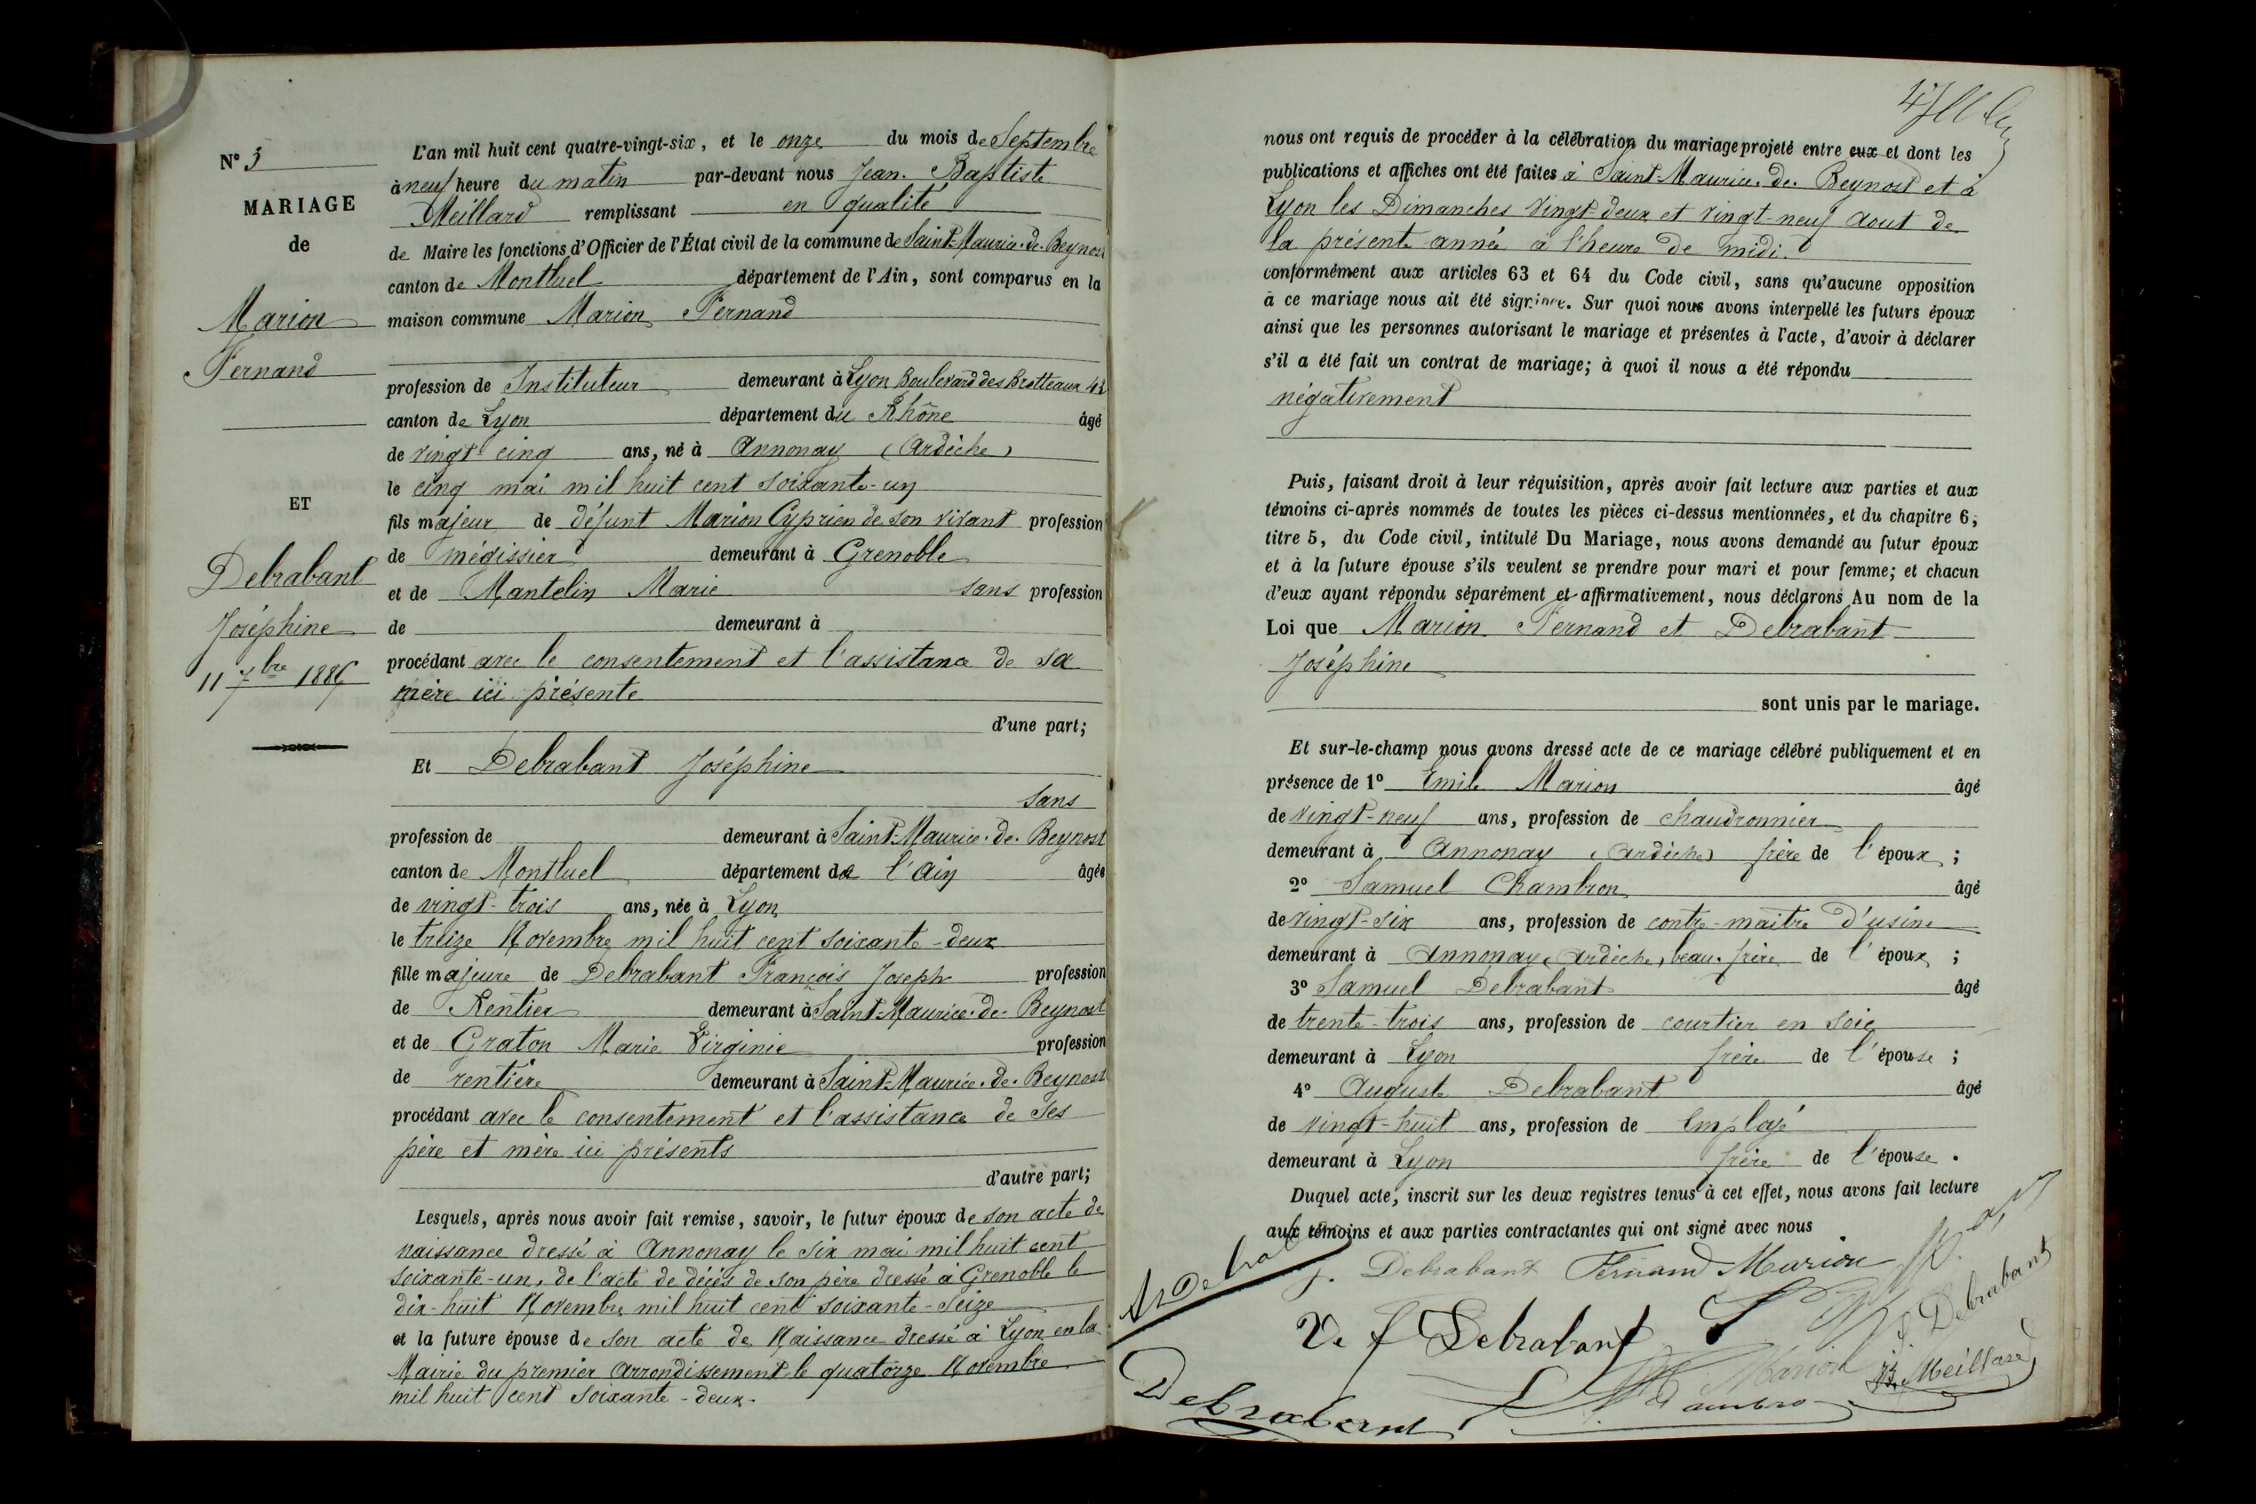 N° 3
MARIAGE
de
Marion
Fernand
ET
Debrabant
Joséphine
11 7bre 1886
L'an mil huit cent quatre-vingt-six, et le onze du mois de Septembre
à neuf heure du matin par-devant nous Jean-Baptiste
Meillard remplissant en qualité
de Maire les fonctions d'Officier de l'État civil de la commune de Saint-Maurice-de-Beynost
canton de Montluel département de l'Ain, sont comparus en la
maison commune Marion Fernand
profession de Instituteur demeurant à Lyon Boulevard des Brotteaux 43
canton de Lyon département du Rhône âgé
de vingt-cinq ans, né à Annonay (Ardèche)
le cinq mai mil huit cent soixante-un
fils majeur de défunt Marion Cyprien de son vivant profession
de mégissier demeurant à Grenoble
et de Mantelin Marie sans profession
de demeurant à
procédant avec le consentement et l'assistance de sa
mère ici présente
d'une part;
Et Debrabant Joséphine
sans
profession de demeurant à Saint-Maurice-de-Beynost
canton de Montluel département de l'Ain âgée
de vingt-trois ans, née à Lyon
le treize Novembre mil huit cent soixante-deux
fille majeure de Debrabant François Joseph profession
de Rentier demeurant à Saint-Maurice-de-Beynost
et de Graton Marie Virginie profession
de rentière demeurant à Saint-Maurice-de-Beynost
procédant avec le consentement et l'assistance de ses
père et mère ici présents
d'autre part;
Lesquels, après nous avoir fait remise, savoir, le futur époux de son acte de
naissance dressé à Annonay le six mai mil huit cent
soixante-un, de l'acte de décès de son père dressé à Grenoble le
dix-huit Novembre mil huit cent soixante-seize
et la future épouse de son acte de Naissance dressé à Lyon en la
Mairie du premier Arrondissement le quatorze Novembre
mil huit cent soixante-deux.
nous ont requis de procéder à la célébration du mariage projeté entre eux et dont les
publications et affiches ont été faites à Saint-Maurice-de-Beynost et à
Lyon les Dimanches vingt-deux et vingt-neuf Aout de
la présente année à l'heure de midi.
conformément aux articles 63 et 64 du Code civil, sans qu'aucune opposition
à ce mariage nous ait été signifiée. Sur quoi nous avons interpellé les futurs époux
ainsi que les personnes autorisant le mariage et présentes à l'acte, d'avoir à déclarer
s'il a été fait un contrat de mariage; à quoi il nous a été répondu
négativement
Puis, faisant droit à leur réquisition, après avoir fait lecture aux parties et aux
témoins ci-après nommés de toutes les pièces ci-dessus mentionnées, et du chapitre 6,
titre 5, du Code civil, intitulé Du Mariage, nous avons demandé au futur époux
et à la future épouse s'ils veulent se prendre pour mari et pour femme; et chacun
d'eux ayant répondu séparément et affirmativement, nous déclarons Au nom de la
Loi que Marion Fernand et Debrabant
Joséphine
sont unis par le mariage.
Et sur-le-champ nous avons dressé acte de ce mariage célébré publiquement et en
présence de 1° Emile Marion âgé
de vingt-neuf ans, profession de chaudronnier
demeurant à Annonay (Ardèche) frère de l'époux;
2° Samuel Chambron âgé
de vingt-six ans, profession de contre-maitre d'usine
demeurant à Annonay, Ardèche, beau-frère de l'époux;
3° Samuel Debrabant âgé
de trente-trois ans, profession de courtier en soie
demeurant à Lyon frère de l'épouse;
4° Auguste Debrabant âgé
de vingt-huit ans, profession de Employé
demeurant à Lyon frère de l'épouse.
Duquel acte, inscrit sur les deux registres tenus à cet effet, nous avons fait lecture
aux témoins et aux parties contractantes qui ont signé avec nous
J. Debrabant Fernand Marion
Debrabant
Ve f Debrabant
Marion
JB Meillard
Debrabant